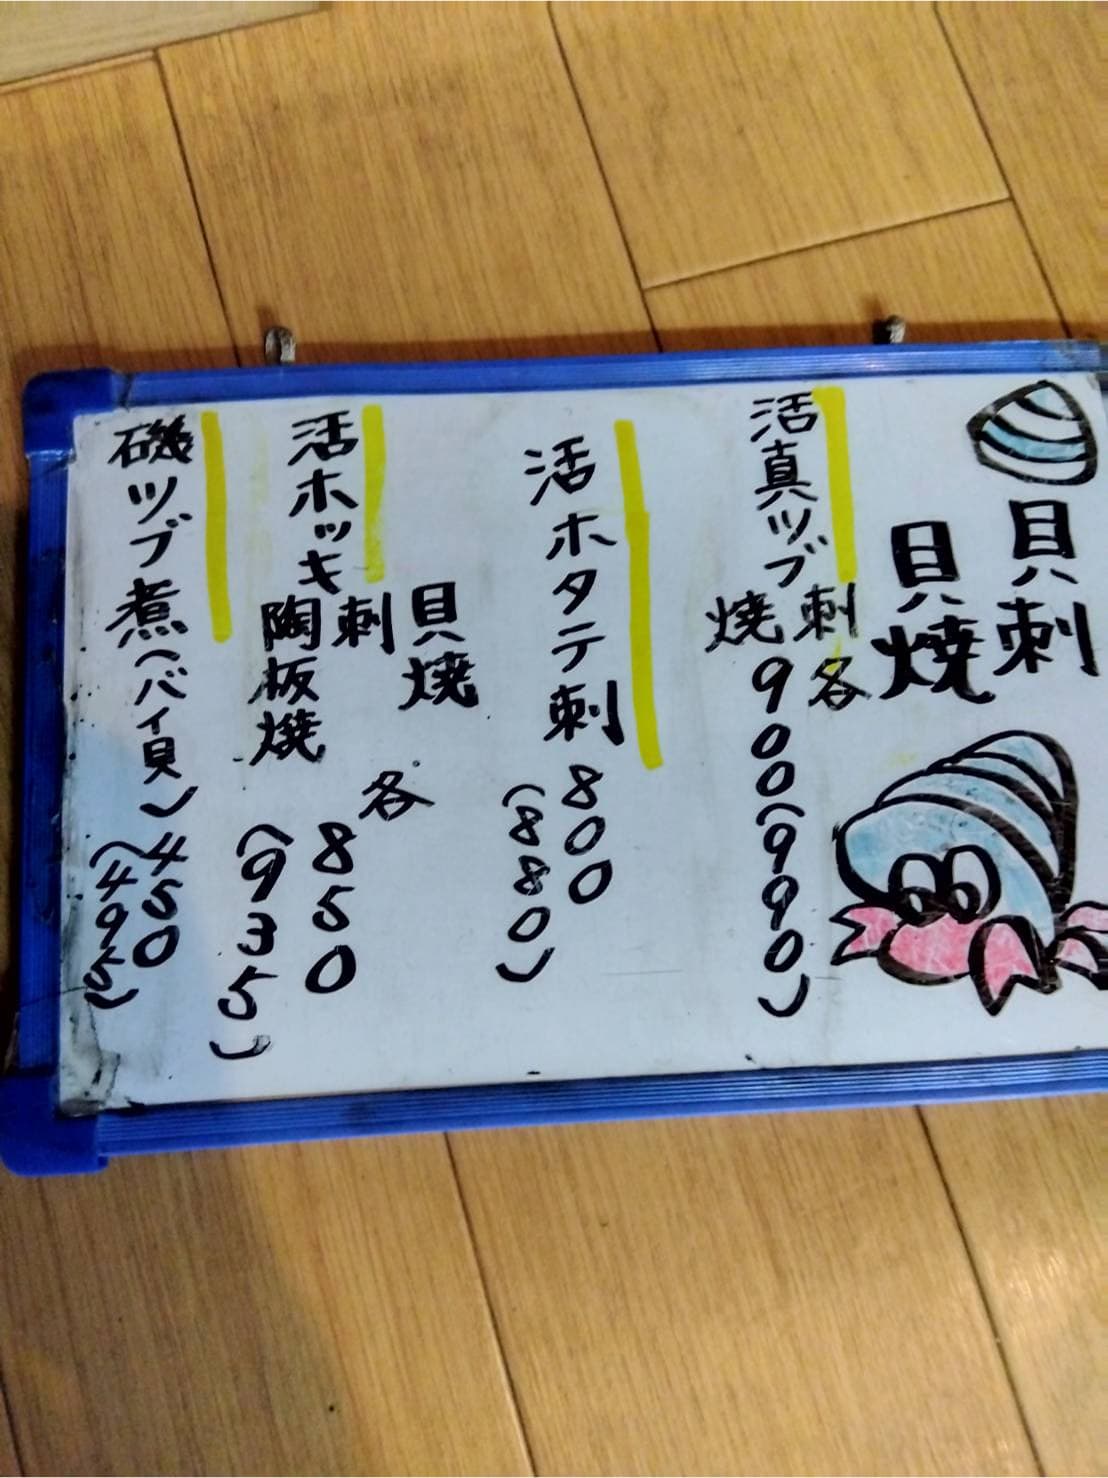 貝刺
貝焼
活真ツブ刺
焼
各
900(990)
活ホタテ刺
800
(880)
貝焼
活ホッキ刺
陶板焼
各
850
(935)
磯ツブ煮(バイ貝)450
(495)